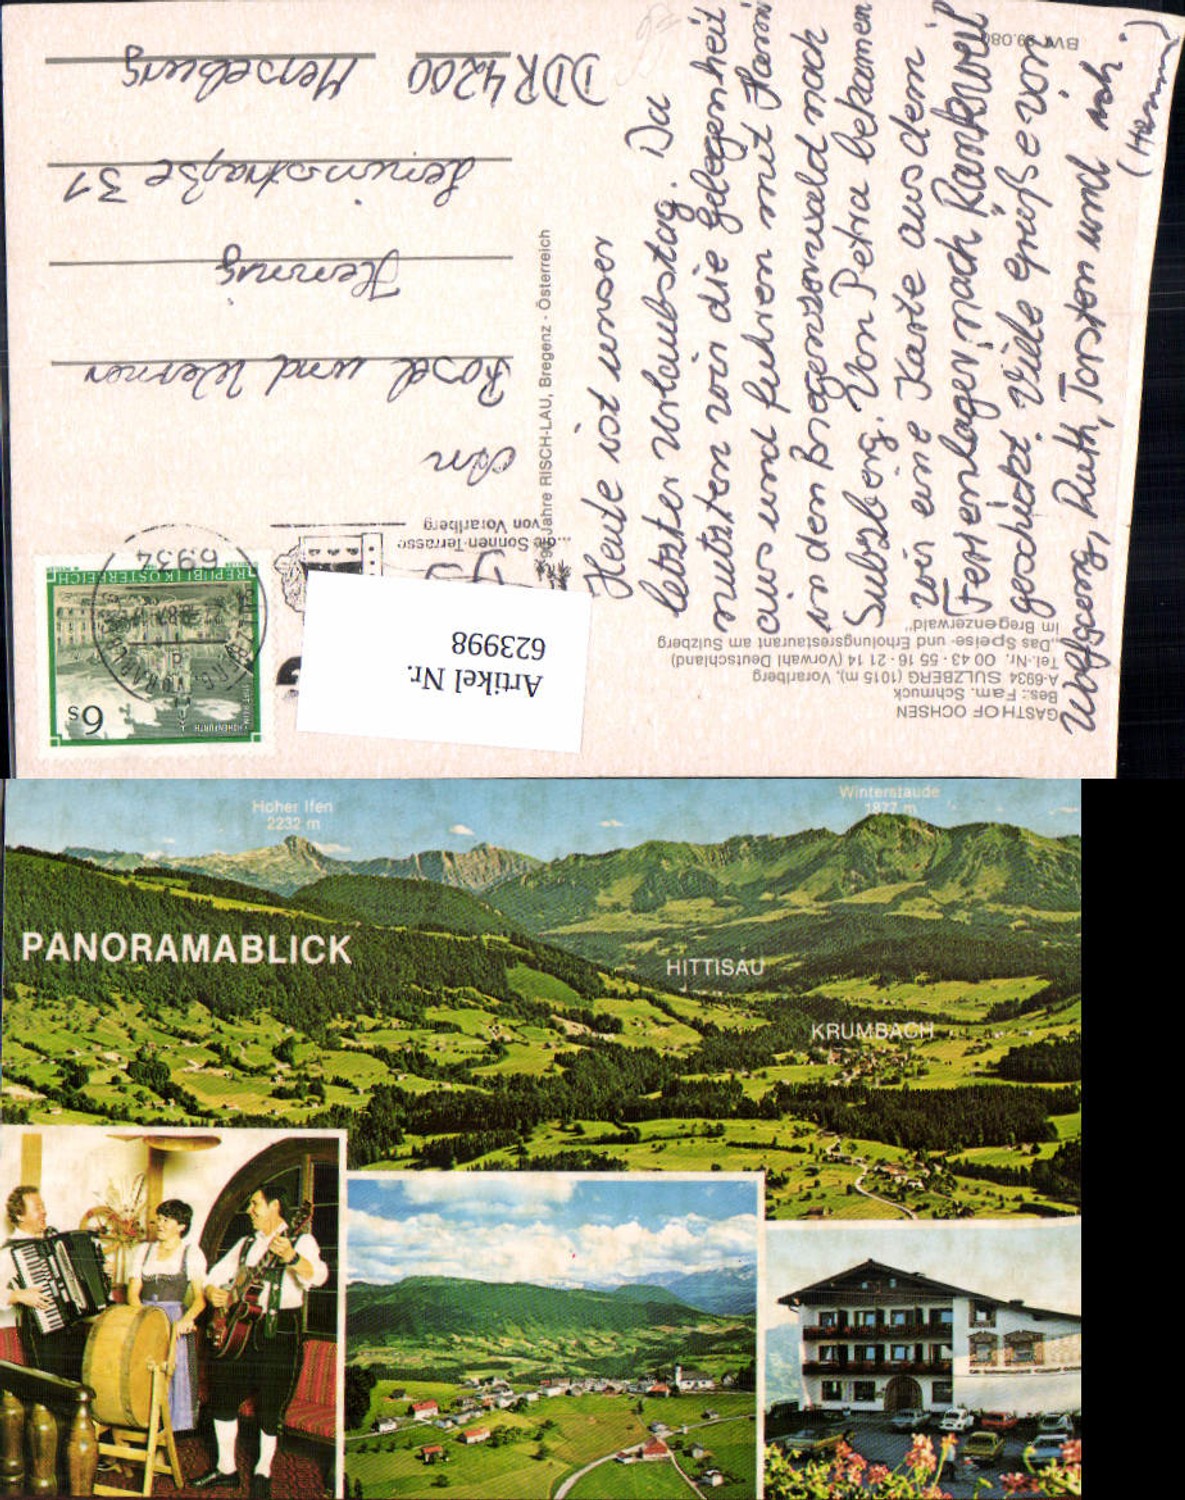 Heute ist unser
letzter Urlaubstag. Da
nutzten wir die Gelegenheit
aus und fuhren mit Hanni
in den Bregenzerwald nach
Sulzberg. Von Petra bekamen
wir eine Karte aus dem
Ferienlager nach Rankweil
geschickt. Viele Grüße von
Wolfgang, Ruth, Torsten und ich.
(Hanni)
An
Rosel und Werner
Hennig
Leninstraße 31
DDR 4200 Merseburg
GASTHOF OCHSEN
Bes.: Fam. Schmuck
A-6934 SULZBERG (1015 m), Vorarlberg
Tel.-Nr. 00 43 - 55 16 - 21 14 (Vorwahl Deutschland)
„Das Speise- und Erholungsrestaurant am Sulzberg
im Bregenzerwald"
Jahre RISCH-LAU, Bregenz - Österreich
...die Sonnen-Terrasse
von Vorarlberg
6934
REPUBLIK ÖSTERREICH
6s
Artikel Nr.
623998
Hoher Ifen
2232 m
Winterstaude
1877 m
PANORAMABLICK
HITTISAU
KRUMBACH